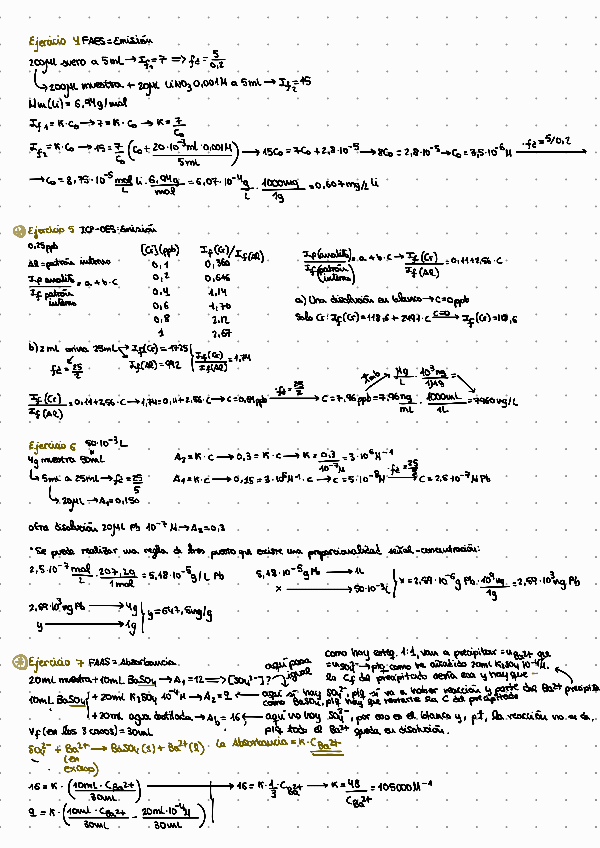 Ejercicio 4 FAES = Emisión
200μL suero a 5mL → If1 = 7 => fd = 5/0,2
↳ 200μL muestra + 20μL LiNO3 0,001M a 5mL → If2 = 15
Mm(Li) = 6,94g/mol
If1 = K·C0 → 7 = K·C0 → K = 7/C0
If2 = K·C0 → 15 = 7/C0 (C0 + 20·10^-3 ml·0,001M / 5mL) → 15C0 = 7C0 + 2,8·10^-5 → 8C0 = 2,8·10^-5 → C0 = 3,5·10^-6 M ·fd = 5/0,2 →
→ C0 = 8,75·10^-5 mol/L Li · 6,94g/mol = 6,07·10^-4 g/L · 1000mg/1g = 0,607 mg/L Li
Ejercicio 5 ICP-OES: Emisión
0,25ppb
AR = patrón interno
If analito / If patrón interno = a + b·C
[Cr](ppb) If(Cr)/If(AR)
0,1 0,360
0,2 0,646
0,4 1,14
0,6 1,70
0,8 2,12
1 2,67
If(analito) / If(patrón interno) = a + b·C → If(Cr)/If(AR) = 0,11 + 2,56·C
a) Una disolución en blanco → C = 0ppb
Solo Cr: If(Cr) = 118,6 + 2497·C C=0 → If(Cr) = 118,6
b) 2 mL orina 25mL → If(Cr) = 1725
If(AR) = 992
If(Cr)/If(AR) = 1,74
fd = 25/2
If(Cr)/If(AR) = 0,11 + 2,56·C → 1,74 = 0,11 + 2,56·C → C = 0,64ppb ·fd = 25/2 → C = 7,96ppb = 7,96 ng/mL · 1000mL/1L = 7960ng/L
ppb → μg/L · 10^3 ng/1μg
Ejercicio 6 50·10^-3 L
4g muestra 50ml
↳ 5ml a 25mL → fd = 25/5
↳ 20μL → A1 = 0,150
A2 = K·C → 0,3 = K·C → K = 0,3/10^-7 M = 3·10^6 M^-1
A1 = K·C → 0,15 = 3·10^6 M^-1·C → C = 5·10^-8 M ·fd = 25/5 → C = 2,5·10^-7 M Pb
otra disolución 20μL Pb 10^-7 M → A2 = 0,3
*Se puede realizar una regla de tres puesto que existe una proporcionalidad señal-concentración:
2,5·10^-7 mol/L · 207,2g/1mol = 5,18·10^-5 g/L Pb
5,18·10^-5 g Pb → 1L
x → 50·10^-3 L
x = 2,59·10^-6 g Pb · 10^9 ng/1g = 2,59·10^3 ng Pb
2,59·10^3 ng Pb → 4g
y → 1g
y = 647,5ng/g
Ejercicio 7 FAAS = Absorbancia.
20ml muestra + 10mL BaSO4 → A1 = 12 => [SO4^2-]?
aquí pasa igual
como hay esteq. 1:1, van a precipitar = n Ba2+ que
n SO4^2- → plq como he añadido 20ml K2SO4 10^-4 M,
la Cf del precipitado sería esa y hay que
10mL BaSO4 + 20mL K2SO4 10^-4 M → A2 = 9 ← aquí sí hay SO4^2-, plq si va a haber reacción y parte del Ba2+ precipita
como BaSO4, plq hay que restarle la C del precipitado
+20mL agua destilada → Ab = 16 ← aquí no hay SO4^2-, por eso es el blanco y, pt, la reacción no se da,
plq todo el Ba2+ queda en disolución.
Vf (en los 3 casos) = 30mL
SO4^2- + Ba2+ → BaSO4(s) + Ba2+(l) · la Absorbancia = K·C Ba2+
(en exceso)
16 = K · (10ml·C Ba2+ / 30ml) → 16 = K·1/3·C Ba2+ → K = 48/C Ba2+ = 105000M^-1
9 = K · (10ml·C Ba2+ / 30ml − 20ml·10^-4 M / 30ml)